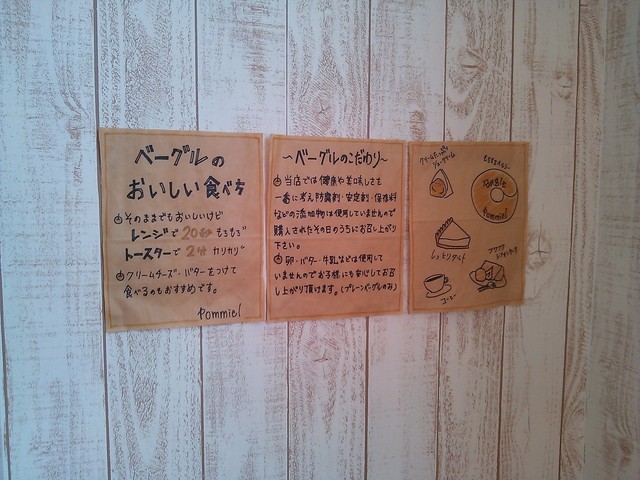 ベーグルの
おいしい食べ方
そのままでもおいしいけど
レンジで20秒もちもち
トースターで2分カリカリ
クリームチーズ・バターをつけて
食べるのもおすすめです。
Pommiel
～ベーグルのこだわり～
当店では健康や美味しさを
一番に考え防腐剤・安定剤・保存料
などの添加物は使用していませんので
購入されたその日のうちにお召し上がり
下さい。
卵・バター・牛乳などは使用して
いませんのでお子様にも安心してお召
し上がり頂けます。(プレーンベーグルのみ)
Pommiel
しっとりタルト
コーヒー